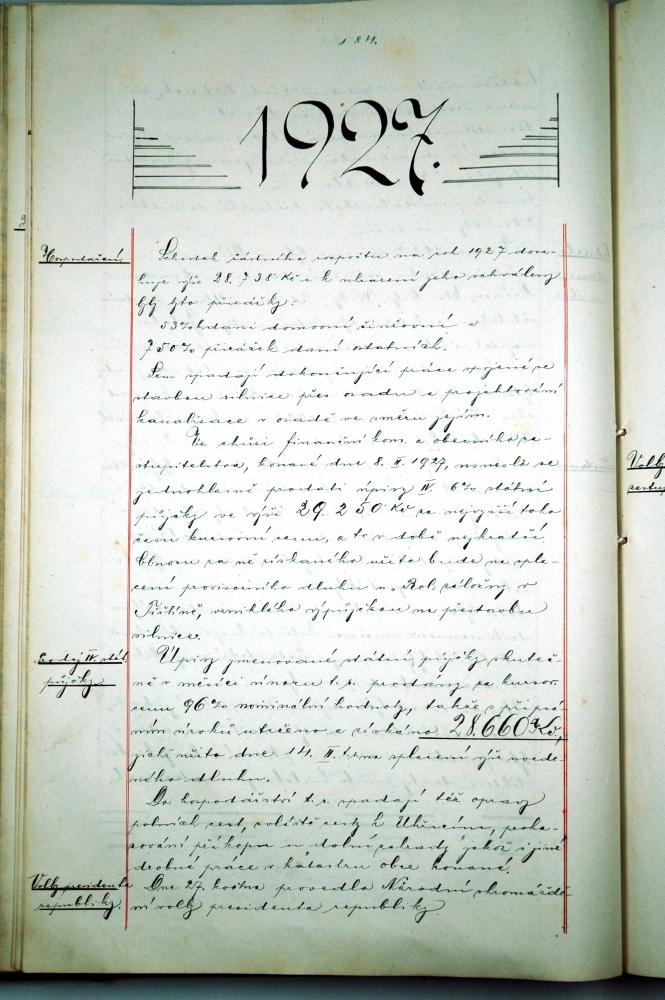 184.
1927.
Hospodaření
Schodek řádného rozpočtu na rok 1927 dosa-
huje výše 28.738 Kč i k uhrazení jeho schváleny
byly tyto přirážky:
53% k dani domovní činžovní a
750% přirážek daní ostatních.
Sem spadají dokončující práce spojené se
stavbou silnice přes osadu a projektování
kanalisace v osadě ve směru jejím.
Ve schůzi finanční kom. a obecního za-
stupitelstva, konané dne 8. II. 1927, usneslo se
jednohlasně prodati úpisy IV. 6% státní
půjčky ve výši 29.250 Kč za nejvyšší toho
času kursovní cenu, a to v době nejkratší.
Obnosu za ně získaného užito bude na spla-
cení provisorního dluhu u Rol. záložny v
vzniklého výpůjčkou na přestavbu
silnice.
Prodej IV. stát.
půjčky.
Úpisy jmenované státní půjčky skuteč-
ně v měsíci únoru t. r. prodány za kursov.
cenu 96% nominální hodnoty, takže s připsa-
ním úroků utrženo a získáno 28.660 Kč,
jichž užito dne 14. II. t. r. na splacení výše uvede-
ného dluhu.
Do hospodářství t. r. spadají též opravy
polních cest, zvláště cesty k proha-
zování příkopu u „dolní zahrady" jakož i jiné
drobné práce v katastru obce konané.
Volby presidenta
republiky.
Dne 27. května provedlo Národní shromáždě-
ní volby presidenta republiky.
Volby